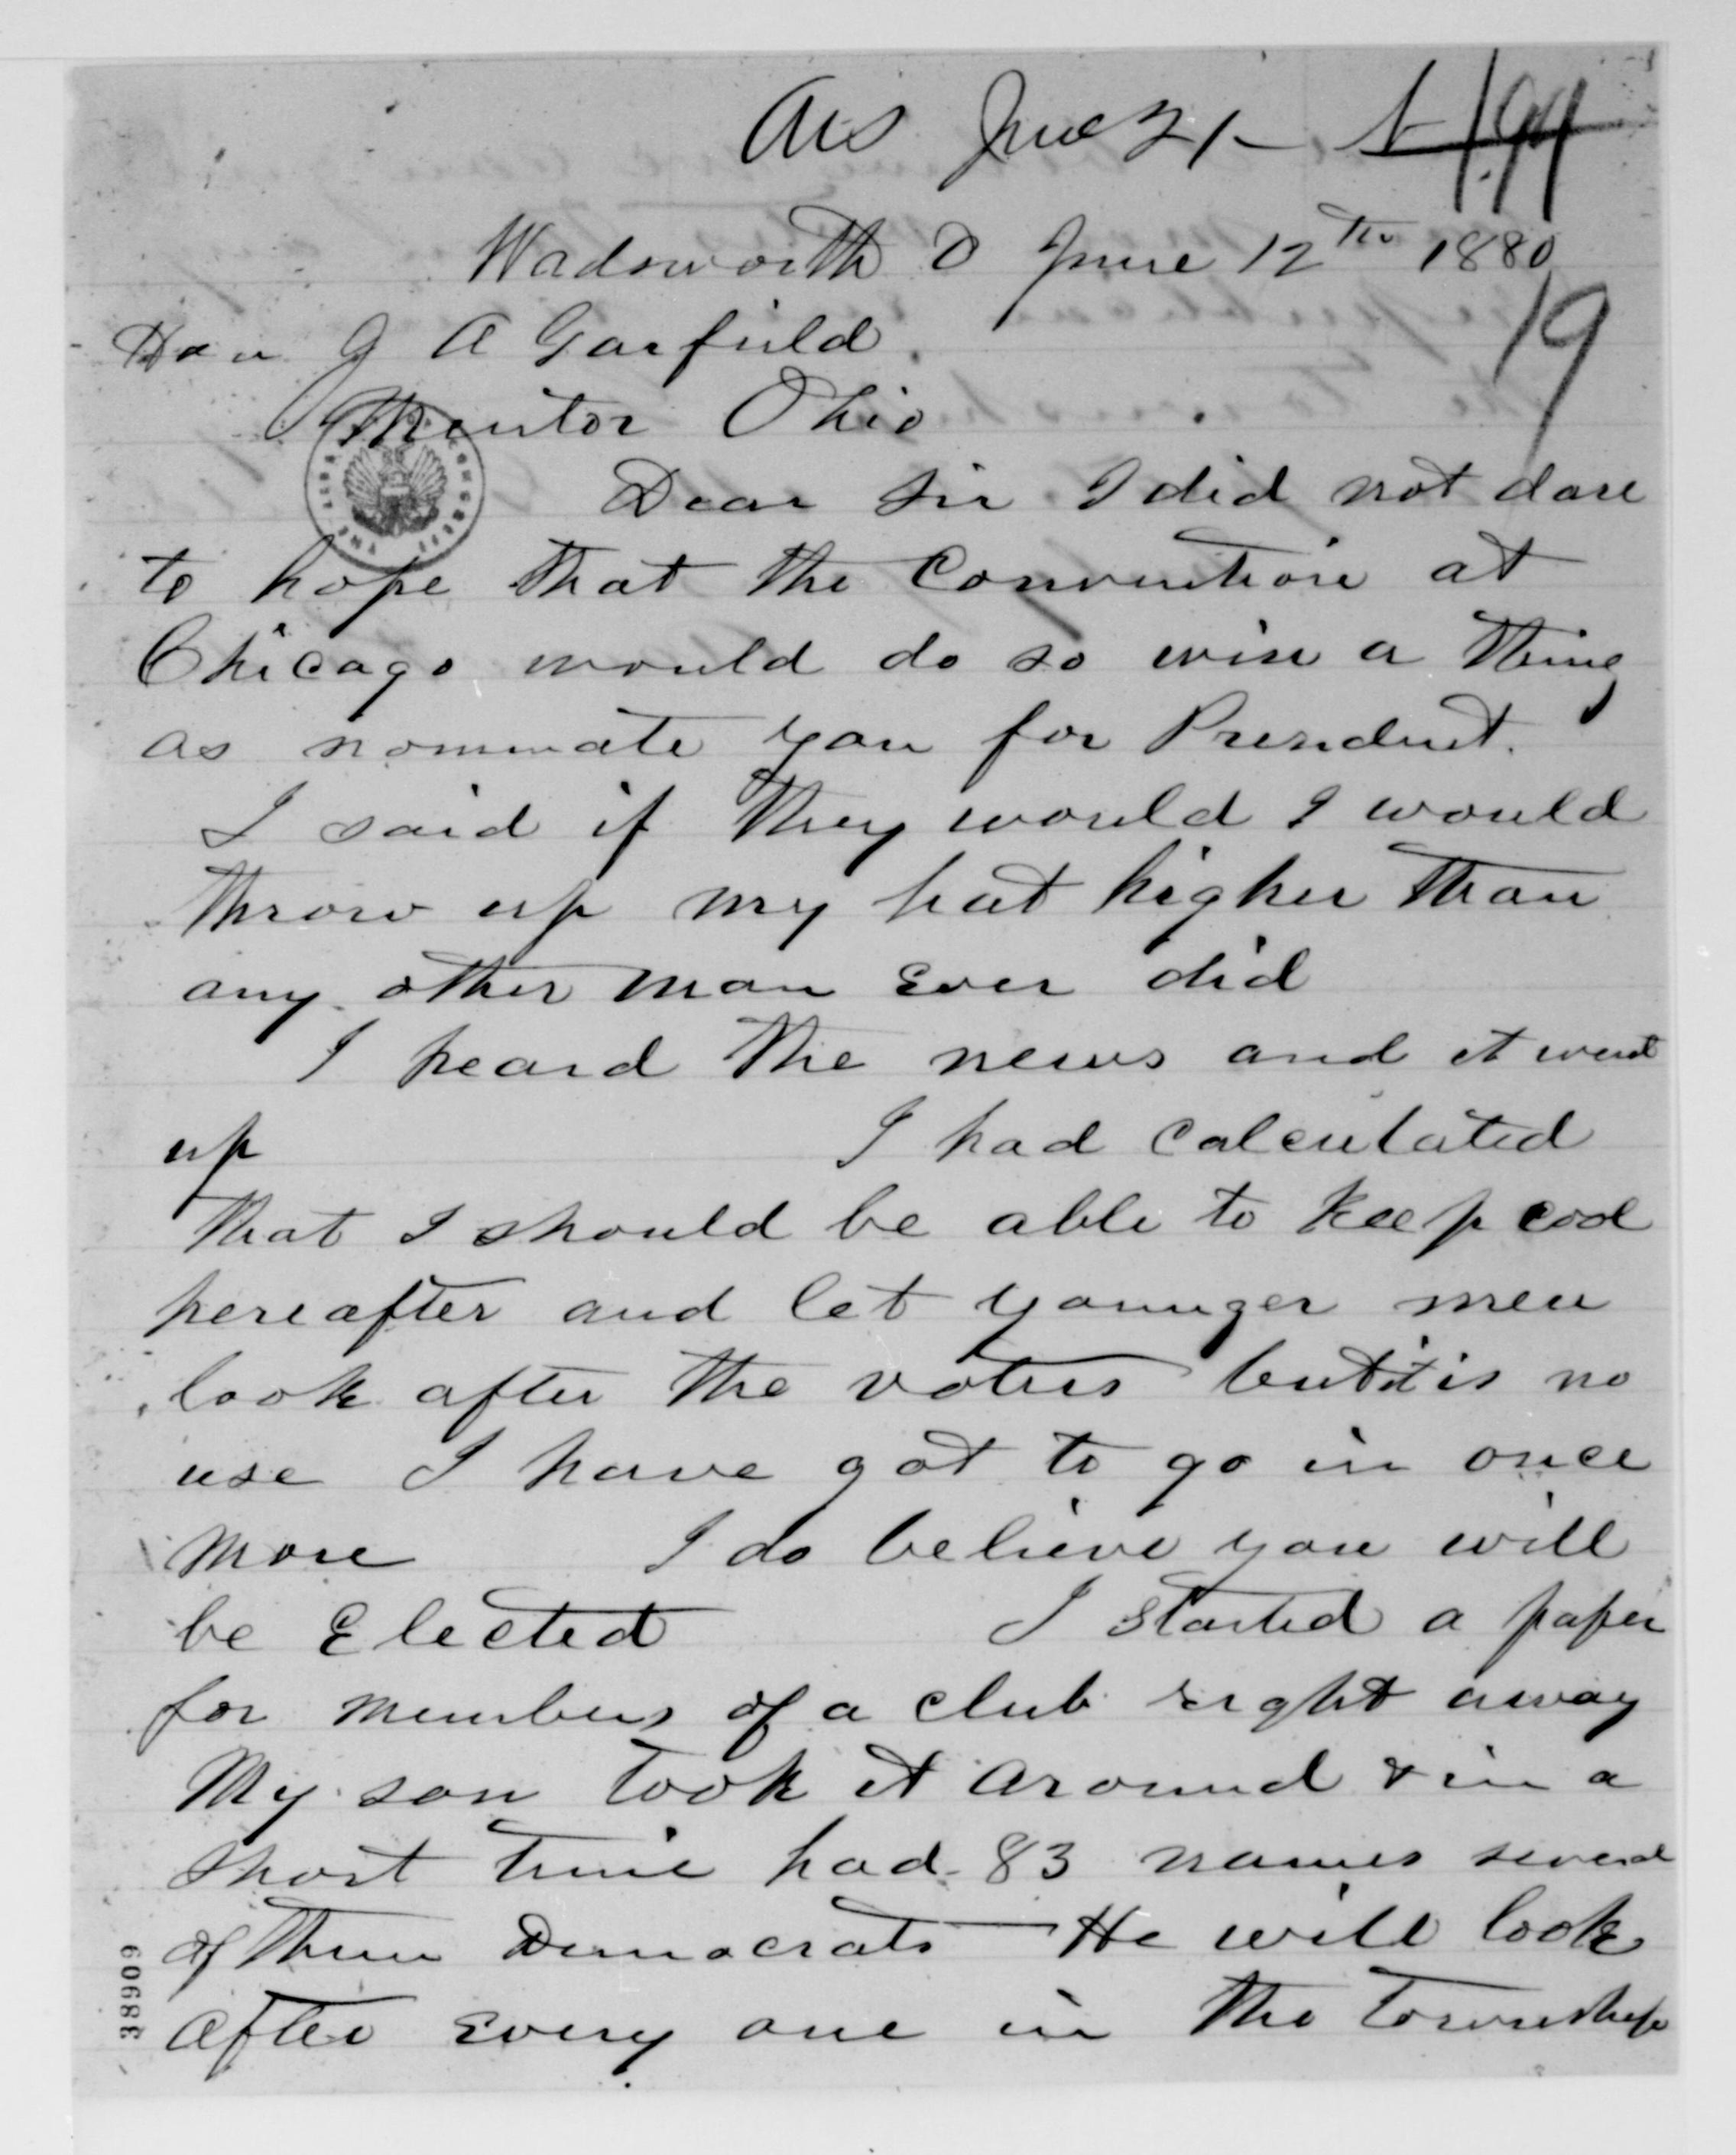 Ans June 21 -
Wadsworth O June 12th 1880
19
Hon J A Garfield.
Mentor Ohio
Dear Sir I did not dare
to hope that the Convention at
Chicago would do so wise a thing
as nominate you for President.
I said if they would I would
throw up my hat higher than
any other man Ever did
I heard the news and it went
up I had Calculated
that I should be able to Keep cool
hereafter and let younger men
look after the voters but it is no
use I have got to go in once
more I do believe you will
be Elected I started a paper
for members of a club right away
My son took it around & in a
short time had 83 names several
of them Democrats He will look
after Every one in the Township
38609